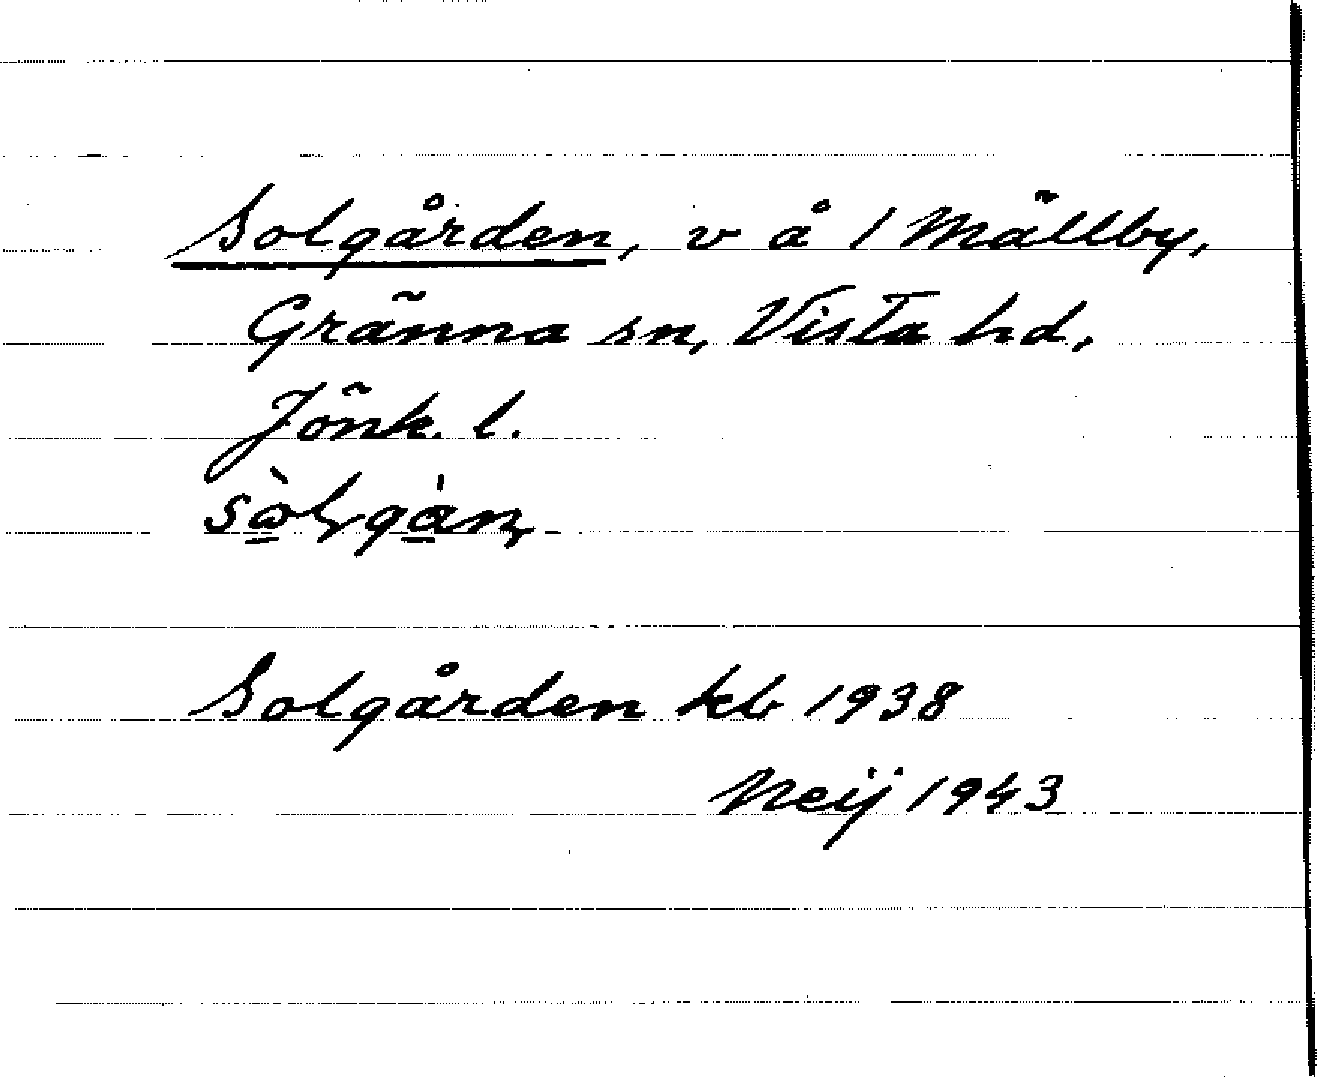 Solgården, v å 1 Mällby,
Gränna sn, Vista hd,
Jönk. l.
Solgården kb 1938
Neij 1943